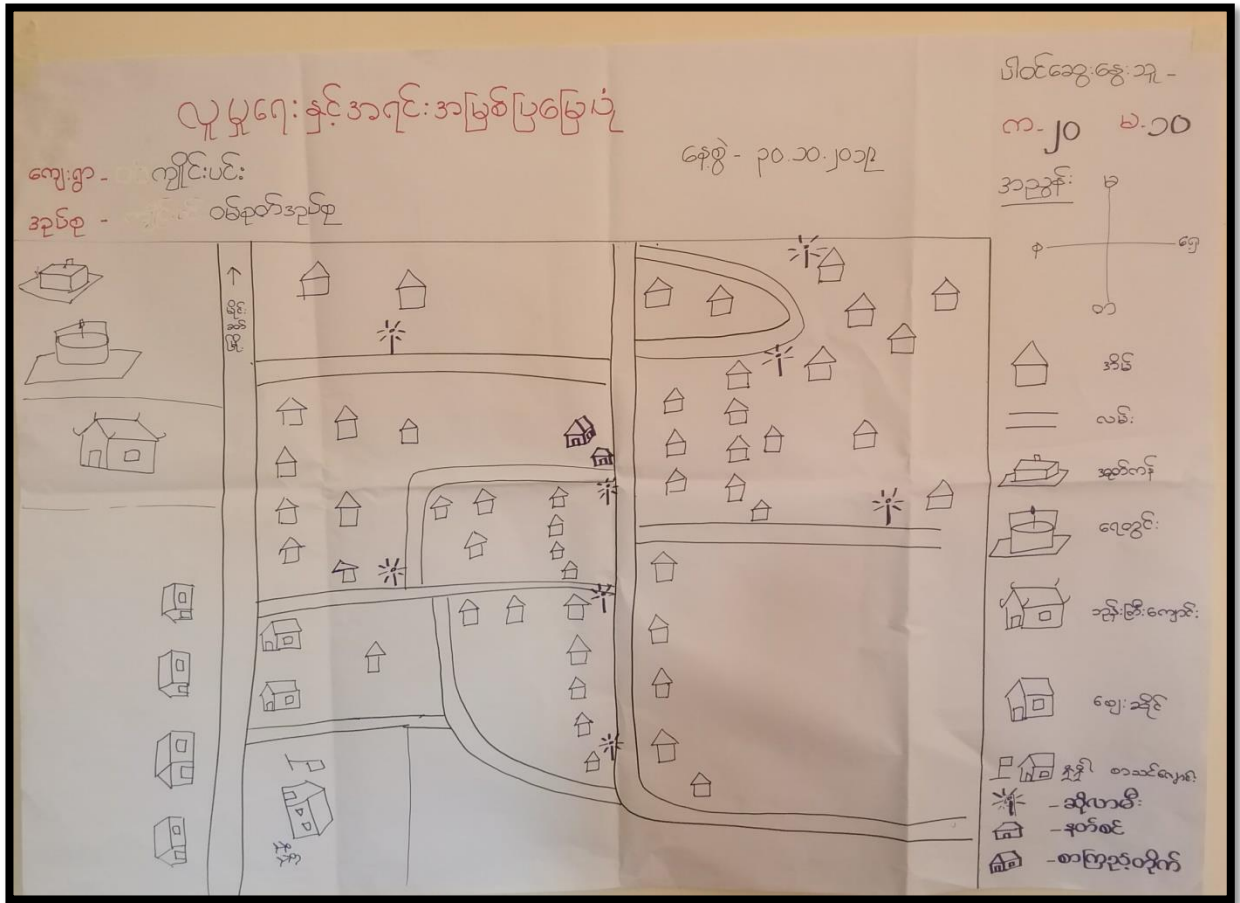 လူမှုရေးနှင့်အရင်းအမြစ်ပြမြေပုံ
ကျေးရွာ - ကျိုင်းပင်း
အုပ်စု - ဝမ်နတ်အုပ်စု
နေ့စွဲ - ၃၀.၁၀.၂၀၁၉
ပါဝင်ဆွေးနွေးသူ -
က-၂၀ မ-၁၀
အညွှန်း
မ
စ ရှေ့
တ
အိမ်
လမ်း
အုတ်ကန်
ရေတွင်း
ဘုန်းကြီးကျောင်း
ဈေးဆိုင်
မူနှင့် စာသင်ကျောင်း
- ဆိုလာမီး
- နတ်စင်
- စာကြည့်တိုက်